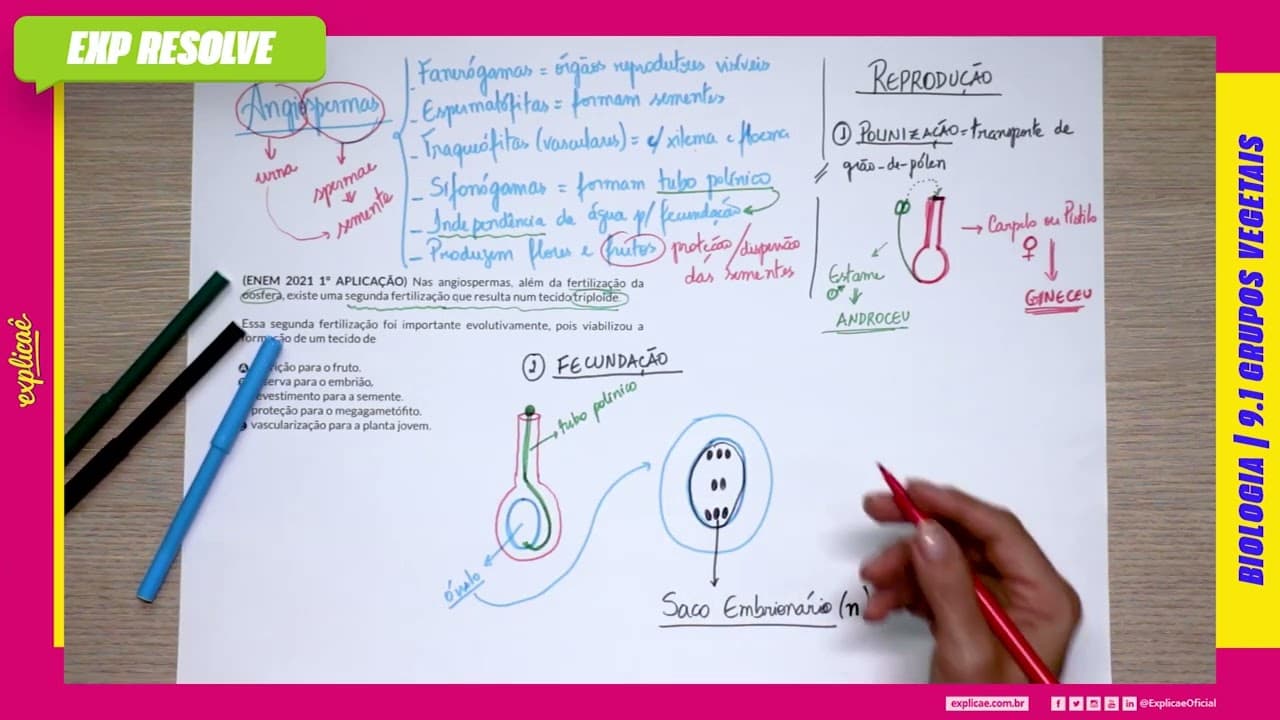 EXP RESOLVE
Angiospermas
urna
spermae
semente
- Fanerógamas = órgãos reprodutores visíveis
- Espermatófitas = formam sementes
- Traqueófitas (vasculares) = c/ xilema e floema
- Sifonógamas = formam tubo polínico
- Independência da água p/ fecundação
- Produzem flores e frutos proteção/dispersão
das sementes
REPRODUÇÃO
① POLINIZAÇÃO = transporte de
grão-de-pólen
→ Carpelo ou Pistilo
♀
GINECEU
Estame
♂
ANDROCEU
(ENEM 2021 1ª APLICAÇÃO) Nas angiospermas, além da fertilização da
oosfera, existe uma segunda fertilização que resulta num tecido triploide.
Essa segunda fertilização foi importante evolutivamente, pois viabilizou a
formação de um tecido de
para o fruto.
para o embrião.
para a semente.
proteção para o megagametófito.
vascularização para a planta jovem.
② FECUNDAÇÃO
tubo polínico
óvulo
Saco Embrionário (n)
explicaê
BIOLOGIA | 9.1 GRUPOS VEGETAIS
explicae.com.br
@ExplicaeOficial